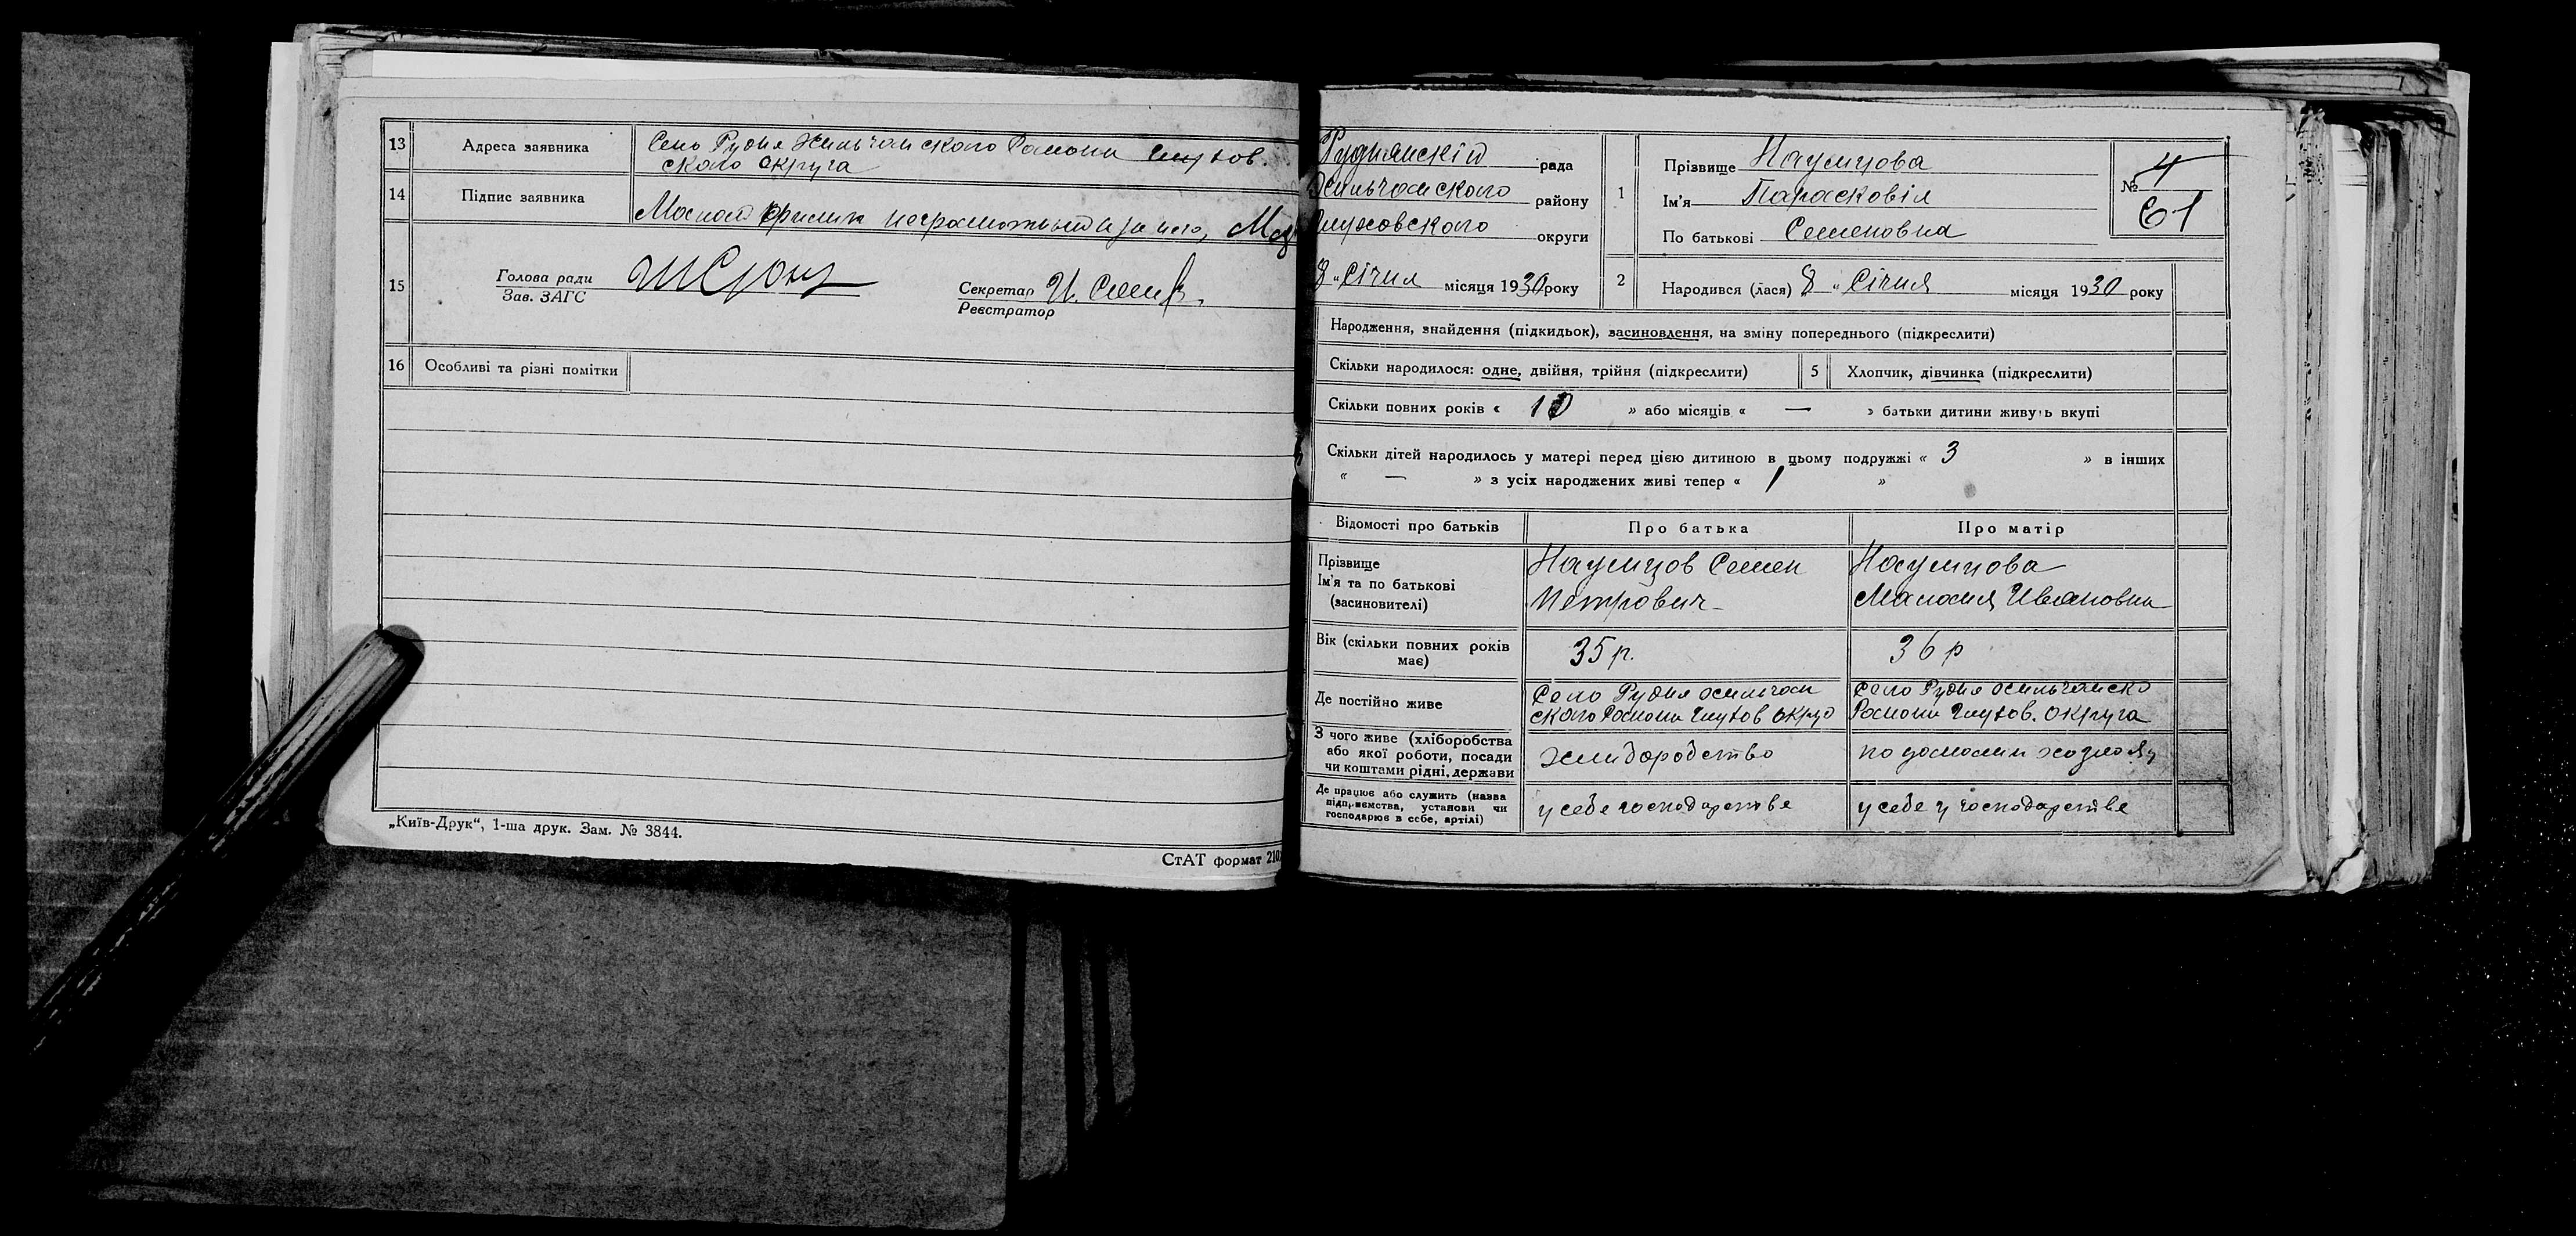 13 Адреса заявника Село Рудня
ского округа
14 Підпис заявника
15 Голова ради
Зав. ЗАГС
Секретар И.
Реєстратор
16 Особливі та різні помітки
„Київ-Друк“, 1-ша друк. Зам. № 3844.
СтАТ формат 210
Руднянскій рада
ского району
овского округи
8 „ Січня місяця 1930 року
1 Прізвище Наумцова
Ім'я Парасковія
По батькові Семеновна
№ 4
61
2 Народився (лася) 8 „ Січня місяця 1930 року
Народження, знайдення (підкидьок), засиновлення, на зміну попереднього (підкреслити)
Скільки народилося: одне, двійня, трійня (підкреслити) 5 Хлопчик, дівчинка (підкреслити)
Скільки повних років « 10 » або місяців « — » батьки дитини живуть вкупі
Скільки дітей народилось у матері перед цією дитиною в цьому подружжі « 3 » в інших
« — » з усіх народжених живі тепер « 1 »
Відомості про батьків Про батька Про матір
Прізвище
Ім'я та по батькові
(засиновителі)
Наумцов Семен
Петрович
Наумцова
Маланя Ивановна
Вік (скільки повних років
має)
35 р.
36 р
Де постійно живе
Село Рудня
ского Глухов округ
Село Рудня
Глухов. округа
З чого живе (хліборобства
або якої роботи, посади
чи коштами рідні, держави
по
Де працює або служить (назва
підприємства, установи чи
господарює в себе, артілі)
у себе господарстве
у себе у господарстве